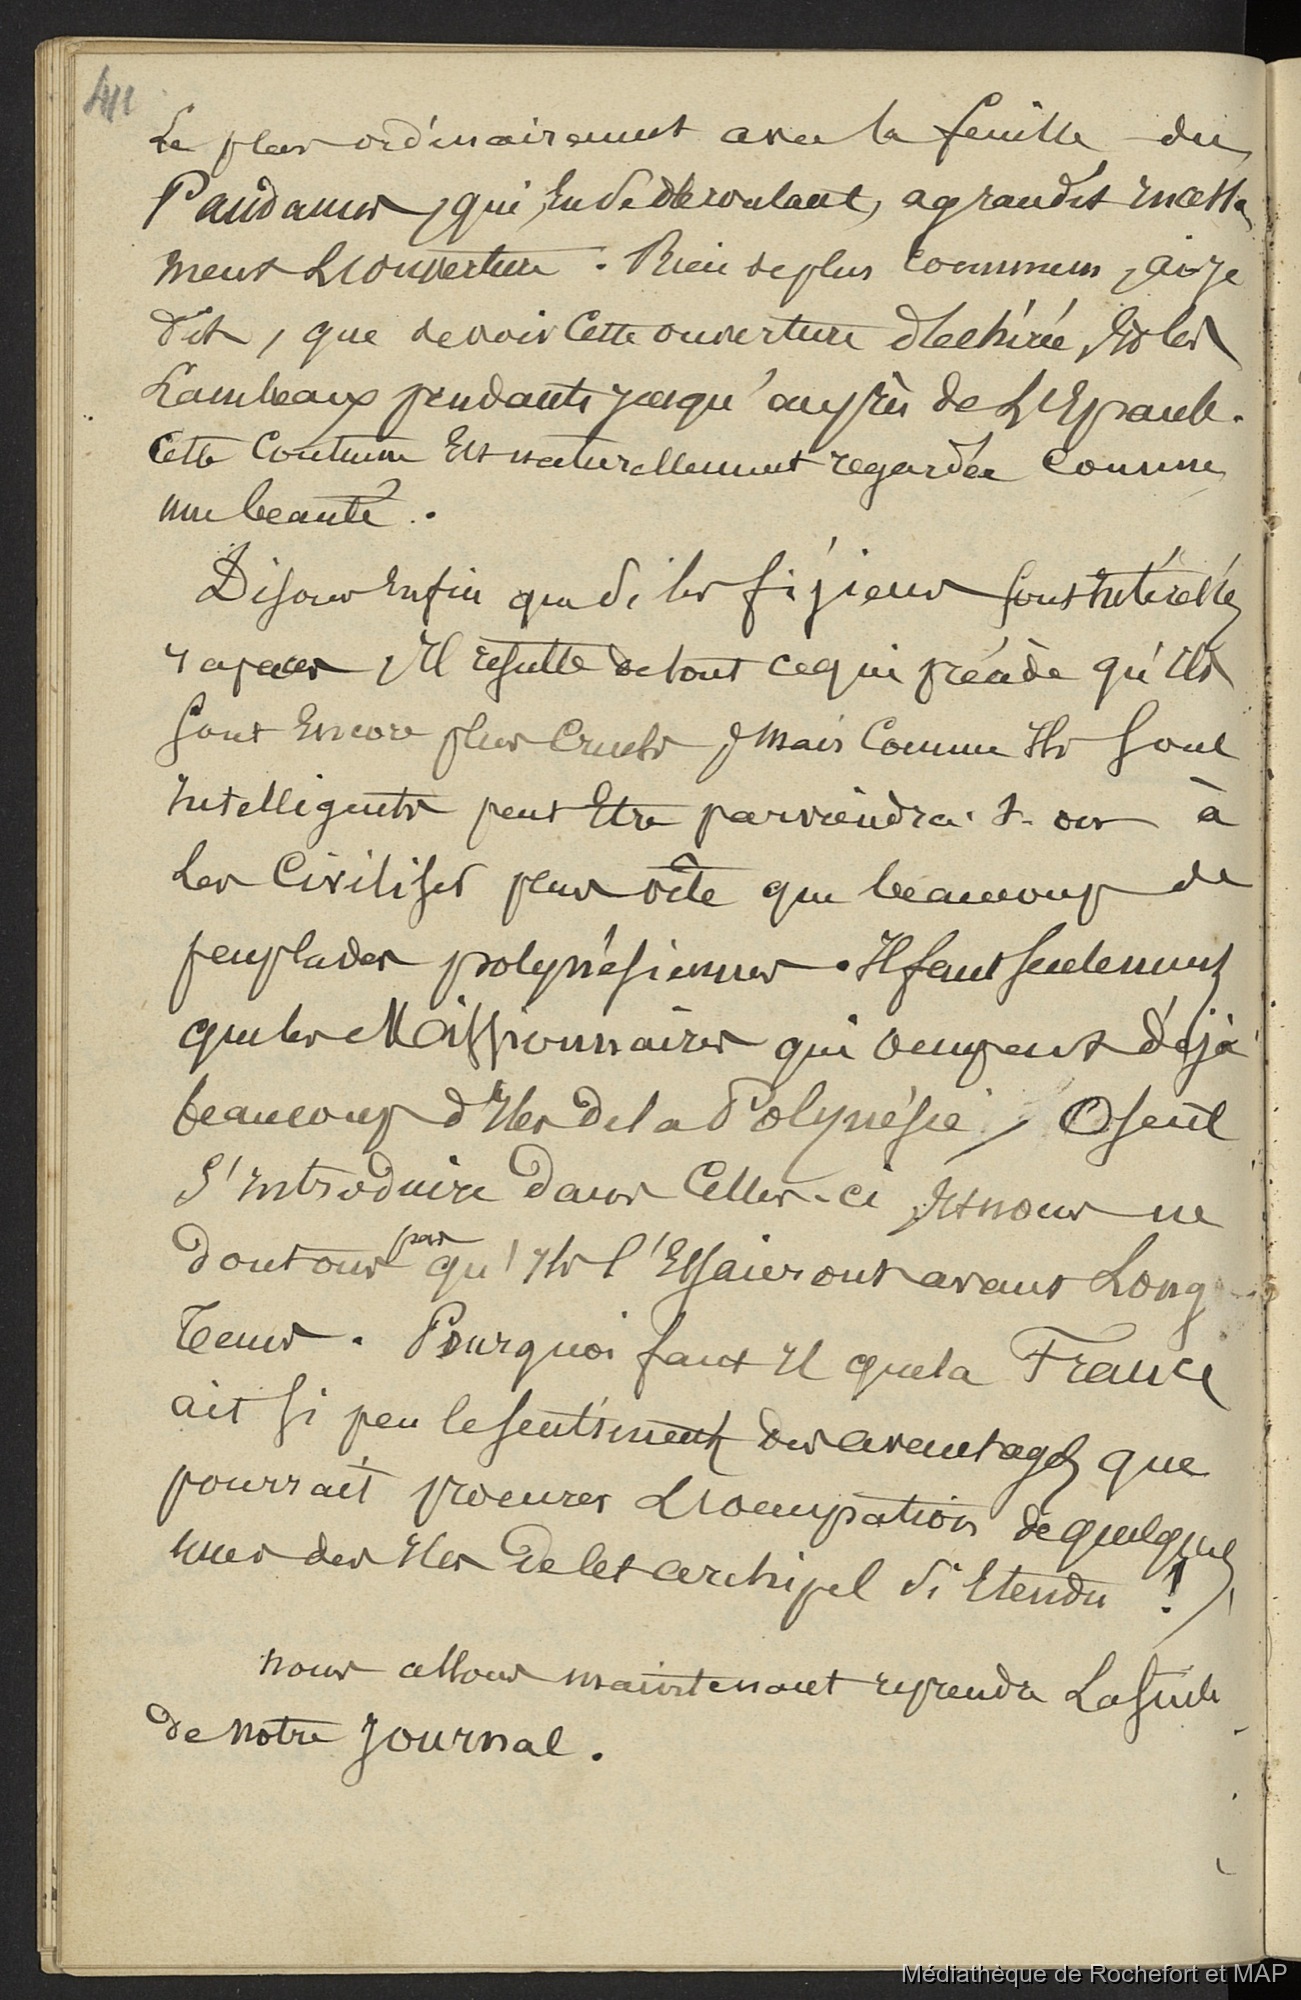 411
Le plus ordinairement avec la feuille du
Pandanus, qui, en se déroulant, agrandit incessa
ment L'ouverture. Rien de plus commun, ai-je
dit, que de voir Cette ouverture déchirée, Et les
Lambeaux pendants jusqu'auprès de L'Epaule.
Cette Coutume Est naturellement regardée Comme
une beauté.
Disons Enfin que si les fijiens sont
rapaces, Il resulte de tout ce qui précède qu'ils
sont Encore plus Cruels, Mais Comme Ils sont
Intelligents peut Etre parviendrait-on à
Les Civiliser plus vîte que beaucoup de
peuplades polynésiennes. Il faut seulement
que les Missionnaires qui occupent déjà
beaucoup d'Iles de la Polynésie, Osent
s'introduire dans Celles-ci, Et nous ne
doutons pas qu'Ils l'Essaieront avant Long
Tems. Pourquoi faut Il que la France
ait si peu le sentiment des avantages que
pourrait procurer L'occupation de quelques
unes des Iles de cet archipel si Etendu !
nous allons maintenant reprendre La suite
de notre Journal.
Médiathèque de Rochefort et MAP